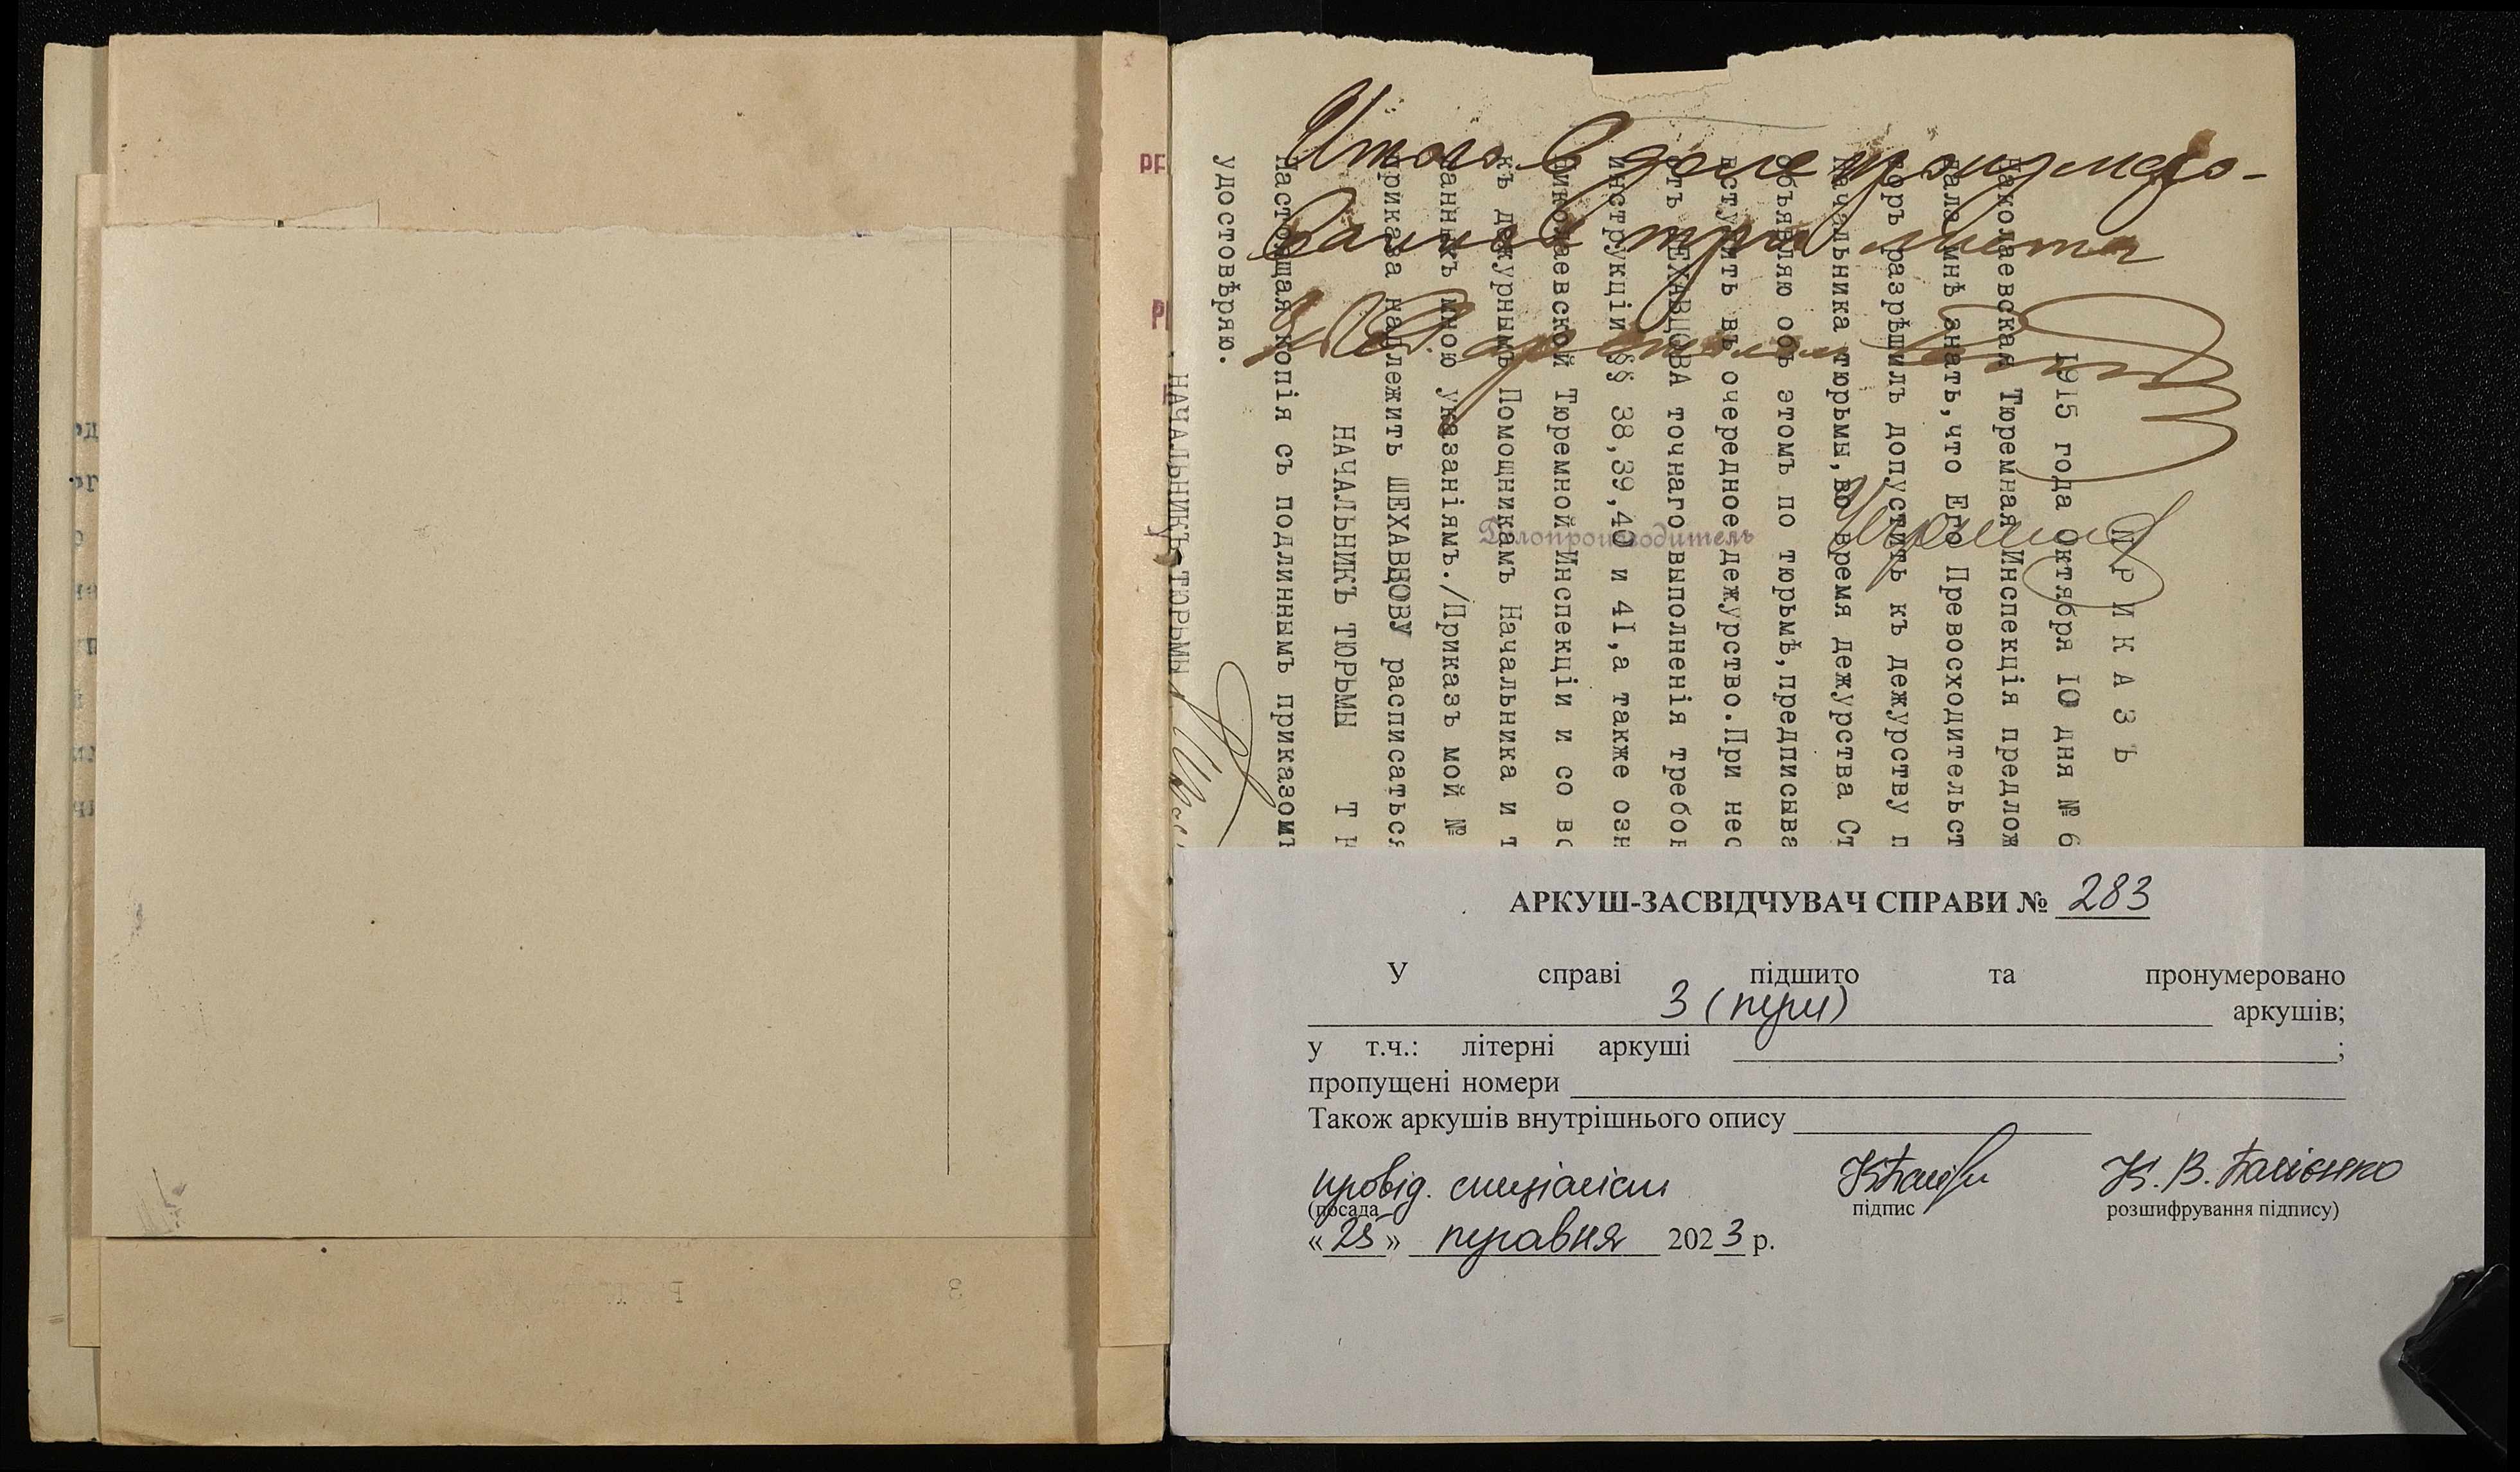 Итого в деле пронумеро-
ванных три листа
Делопроизводитель
П Р И К А З Ъ
1915 года Октября 10 дня № 6
Николаевская Тюремная Инспекція предлож
мнѣ знать,что Его Превосходительст
разрѣшилъ допустить къ дежурству п
Начальника тюрьмы,во время дежурства Ст
объявляю объ этомъ по тюрьмѣ,предписыва
вступить въ очередное дежурство.При нес
отъ ШЕХАВЦОВА точнаго выполненія требов
инструкціи §§ 38,39,40 и 41,а также озн
Николаевской Тюремной Инспекціи и со вс
къ дежурнымъ Помощникамъ Начальника и т
данныхъ мною указаніямъ./Приказъ мой №
приказа надлежитъ ШЕХАВЦОВУ расписаться
НАЧАЛЬНИКЪ ТЮРЬМЫ Т Ю
Настоящая копія съ подлиннымъ приказомъ
удостовѣряю.
НАЧАЛЬНИКЪ ТЮРЬМЫ
АРКУШ-ЗАСВІДЧУВАЧ СПРАВИ № 283
У справі підшито та пронумеровано
3 (три) аркушів;
у т.ч.: літерні аркуші ;
пропущені номери
Також аркушів внутрішнього опису
провід. спеціаліст К. В.
(посада підпис розшифрування підпису)
«25» травня 2023 р.